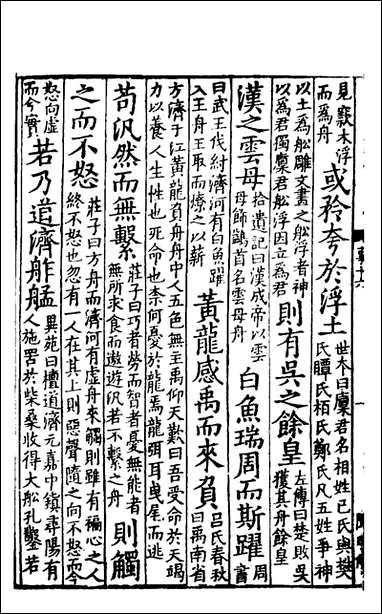 見竅木浮而為舟或矜夸於浮土世本曰廩君名相姓巳氏與樊氏瞫氏栢氏鄭氏凡五姓爭神
以土為舩雕文書之舩浮者神以為君獨廩君舩浮因立為君則有吳之餘皇左傳曰楚敗吳獲其舟餘皇
漢之雲母拾遺記曰漢成帝以雲母飾鷁首名雲母舟白魚瑞周而斯躍周書
曰武王伐紂濟河有白魚躍入王舟王取而燎之以薪黃龍感禹而來負呂氏春秋曰禹南省
方濟于江黃龍負舟舟中人五色無主禹仰天歎曰吾受命於天竭力以養人生性也死命也柰何憂於龍焉龍弭耳曳尾而逃
苟汎然而無繫莊子曰巧者勞而智者憂無能者無所求食而遨遊汎若不繫之舟則觸
之而不怒莊子曰方舟而濟河有虛舟來觸則雖有褊心之人終不怒也忽有一人在其上則惡聲隨之向不怒而今
怒向虛而今實若乃道濟舴艋異苑曰檀道濟元嘉中鎮尋陽有人施罟於柴桑收得大舩孔鑿若